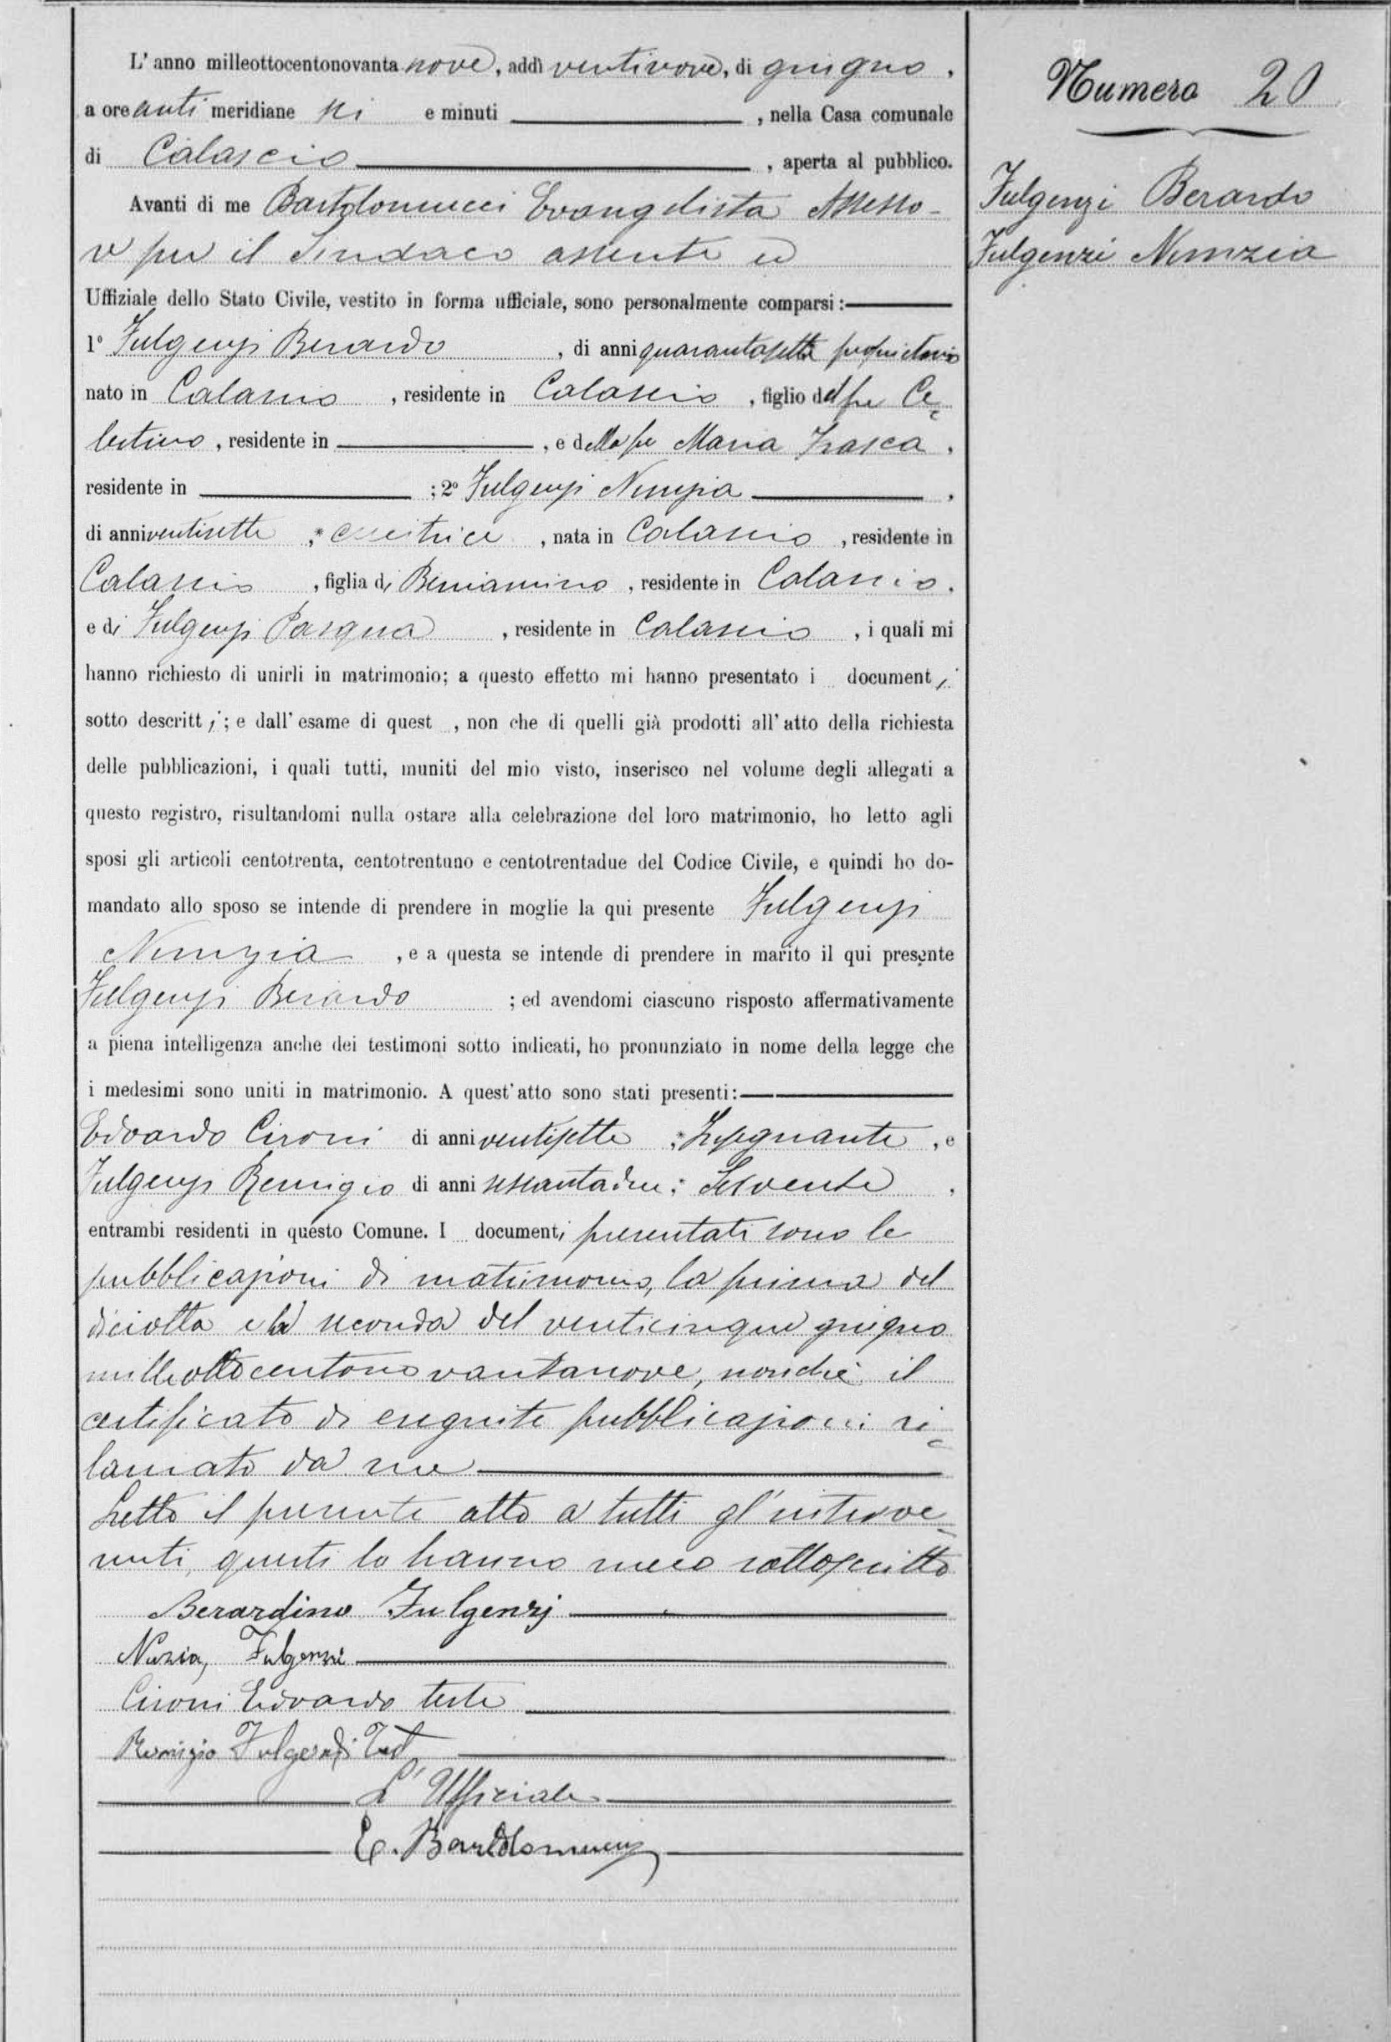 L' anno milleottocentonovanta nove, addì ventinove, di giugno,
a ore anti meridiane sei e minuti , nella Casa comunale
di Calascio , aperta al pubblico.
Avanti di me Bartolomucci Evangelista Assesso-
re per il Sindaco assente ed
Uffiziale dello Stato Civile, vestito in forma ufficiale, sono personalmente comparsi :
1º Fulgenzi Berardo , di anni quarantasette proprietario
nato in Calascio , residente in Calascio , figlio del fu Ce-
lestino , residente in , e della fu Maria Frasca ,
residente in ; 2º Fulgenzi Nunzia ,
di anni ventisette , cucitrice , nata in Calascio , residente in
Calascio , figlia di Beniamino , residente in Calascio ,
e di Fulgenzi Pasqua , residente in Calascio , i quali mi
hanno richiesto di unirli in matrimonio; a questo effetto mi hanno presentato i documenti
sotto descritti ; e dall' esame di quest , non che di quelli già prodotti all' atto della richiesta
delle pubblicazioni, i quali tutti, muniti del mio visto, inserisco nel volume degli allegati a
questo registro, risultandomi nulla ostare alla celebrazione del loro matrimonio, ho letto agli
sposi gli articoli centotrenta, centotrentuno e centotrentadue del Codice Civile, e quindi ho do-
mandato allo sposo se intende di prendere in moglie la qui presente Fulgenzi
Nunzia , e a questa se intende di prendere in marito il qui presente
Fulgenzi Berardo ; ed avendomi ciascuno risposto affermativamente
a piena intelligenza anche dei testimoni sotto indicati, ho pronunziato in nome della legge che
i medesimi sono uniti in matrimonio. A quest' atto sono stati presenti :
Edoardo Cironi di anni ventisette , Insegnante , e
Fulgenzi Remigio di anni sessantadue ; Servente ,
entrambi residenti in questo Comune. I documenti presentati sono le
pubblicazioni di matrimonio, la prima del
diciotto e la seconda del venticinque giugno
milleottocentonovantanove, nonchè il
certificato di eseguite pubblicazioni ri-
lasciato da me
Letto il presente atto a tutti gl' interve-
nuti, questi lo hanno meco sottoscritto
Berardino Fulgenzj
Nuzia, Fulgenzi
Cironi Edoardo teste
Remigio Fulgenzi Test
L' Ufficiale
E. Bartolomucci
Numero 20
Fulgenzi Berardo
Fulgenzi Nunzia